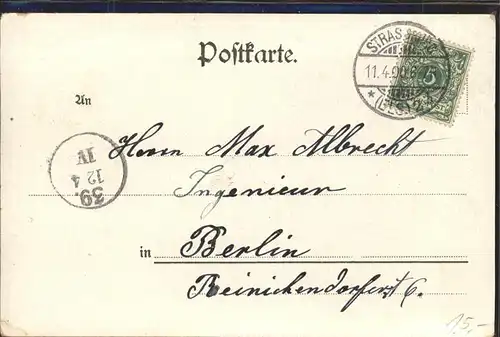 Postkarte.
STRASSBURG
11.4.00.6-7
* (ELS.) 2 d
5
An
Herrn Max Albrecht
Ingenieur
in Berlin
Reinickendorferst 6.
39.
12 4
IV
15,-